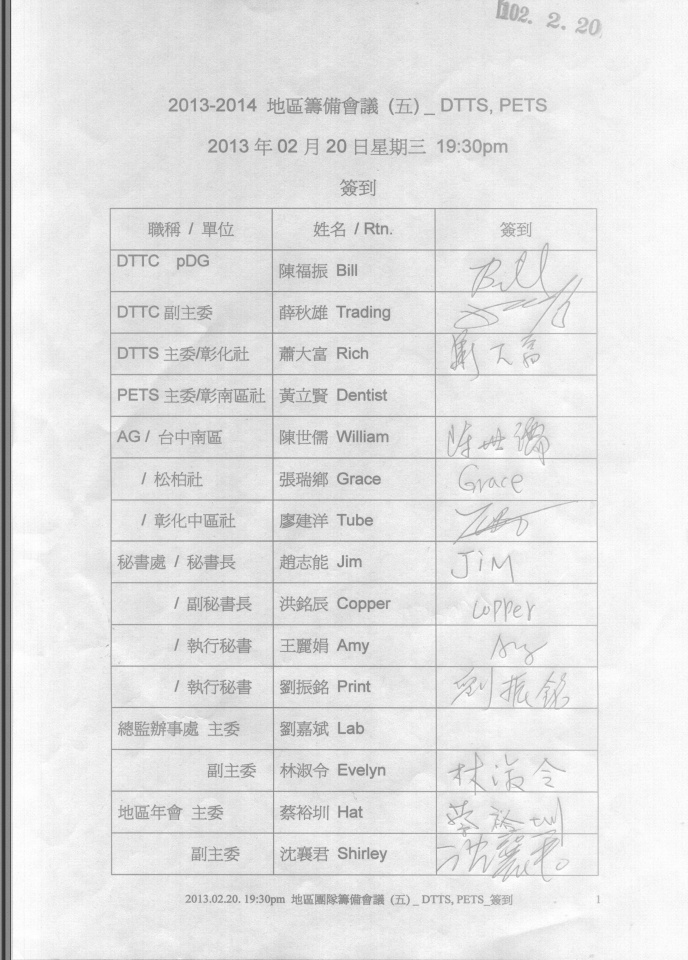 102. 2. 20
2013-2014 地區籌備會議 (五) _ DTTS, PETS
2013 年 02 月 20 日星期三 19:30pm
簽到
職稱 / 單位 姓名 / Rtn. 簽到
DTTC pDG 陳福振 Bill Bill
DTTC 副主委 薛秋雄 Trading
DTTS 主委/彰化社 蕭大富 Rich
PETS 主委/彰南區社 黃立賢 Dentist
AG / 台中南區 陳世儒 William 陳世儒
/ 松柏社 張瑞鄉 Grace Grace
/ 彰化中區社 廖建洋 Tube
秘書處 / 秘書長 趙志能 Jim JiM
/ 副秘書長 洪銘辰 Copper copper
/ 執行秘書 王麗娟 Amy Amy
/ 執行秘書 劉振銘 Print 劉振銘
總監辦事處 主委 劉嘉斌 Lab
副主委 林淑令 Evelyn 林淑令
地區年會 主委 蔡裕圳 Hat 蔡裕圳
副主委 沈襄君 Shirley 沈襄君
2013.02.20. 19:30pm 地區團隊籌備會議 (五) _ DTTS, PETS_簽到 1